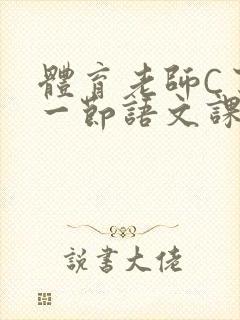 體育老師C
一節語文課
説書大佬